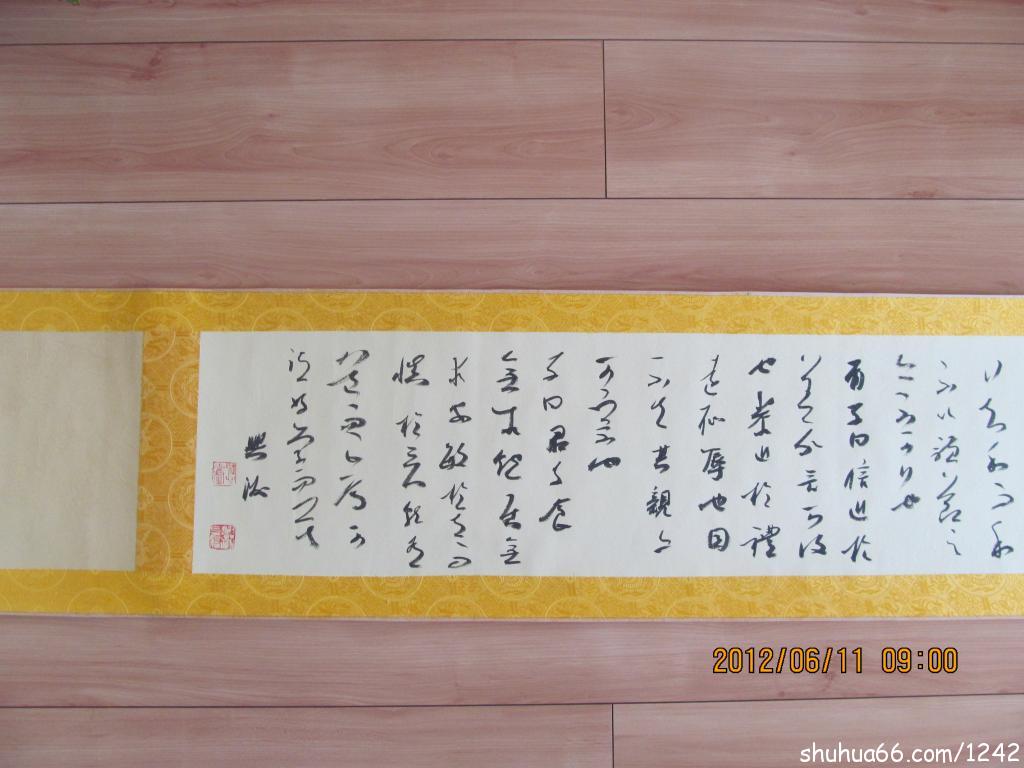 知和而和
不以禮節之
亦不可行也
有子曰信近於
義言可復
也恭近於禮
遠恥辱也因
不失其親亦
可宗也
子曰君子食
無求飽居無
求安敏於事而
慎於言就有
道而正焉可
謂好學也已矣
2012/06/11 09:00
shuhua66.com/1242